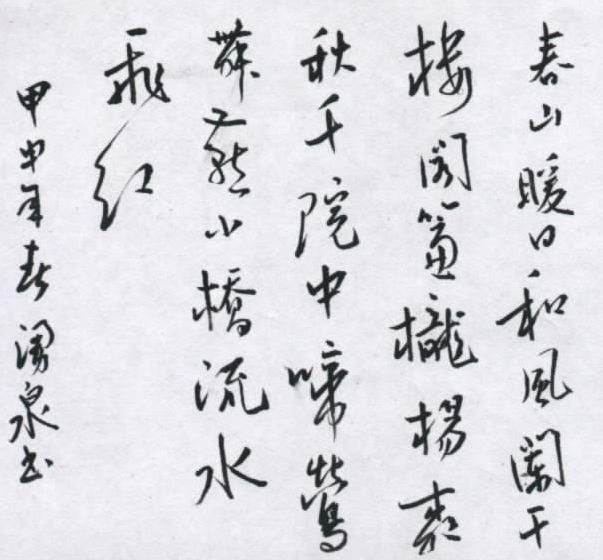 春山暖日和風闌干
樓閣簾櫳楊柳
秋千院中啼鶯
舞燕小橋流水
飛紅
甲申年春湧泉書